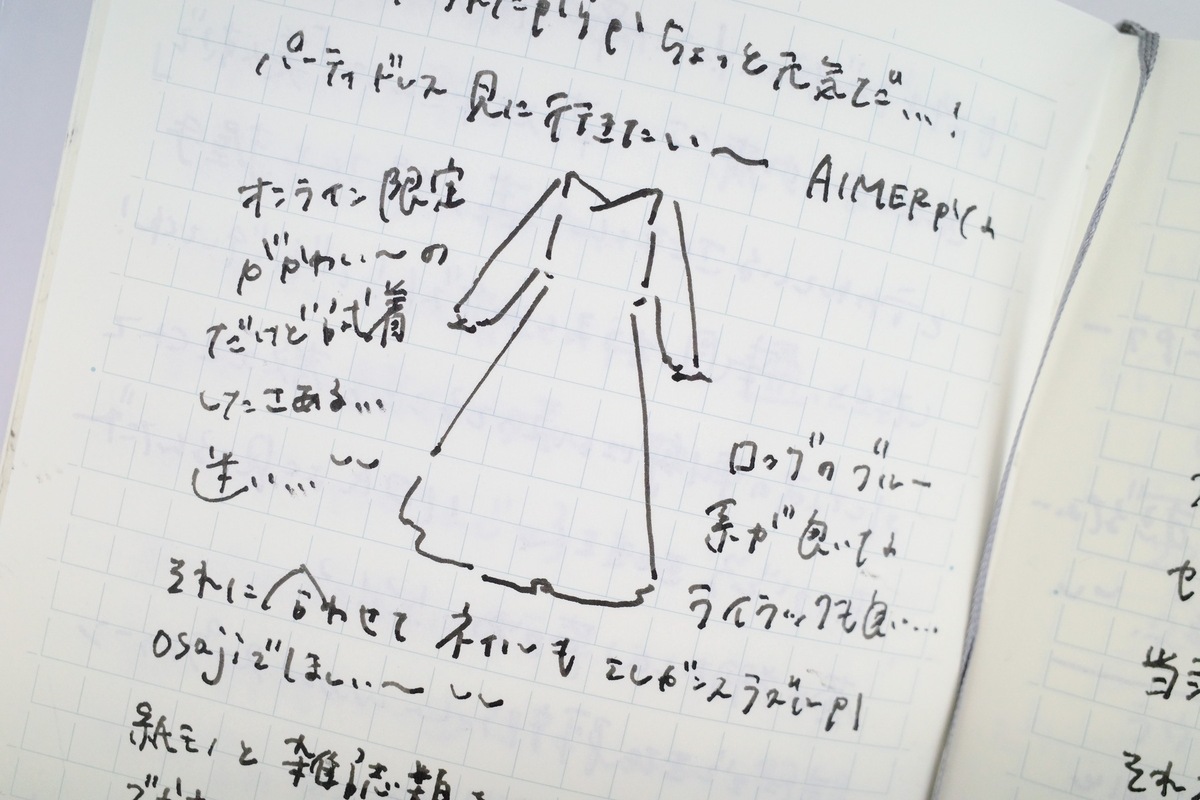 ちょっと元気で…!
パーティドレス 見に行きたい〜 AIMERかなぁ
オンライン限定
がかわい〜の
だけど試着
したさある…
迷い…
ロングのブルー
系が良いなぁ
ライラックも良い…
それに合わせて ネイルも エレガンスラズルか
osajiでほしい〜
紙モノと雑誌類を